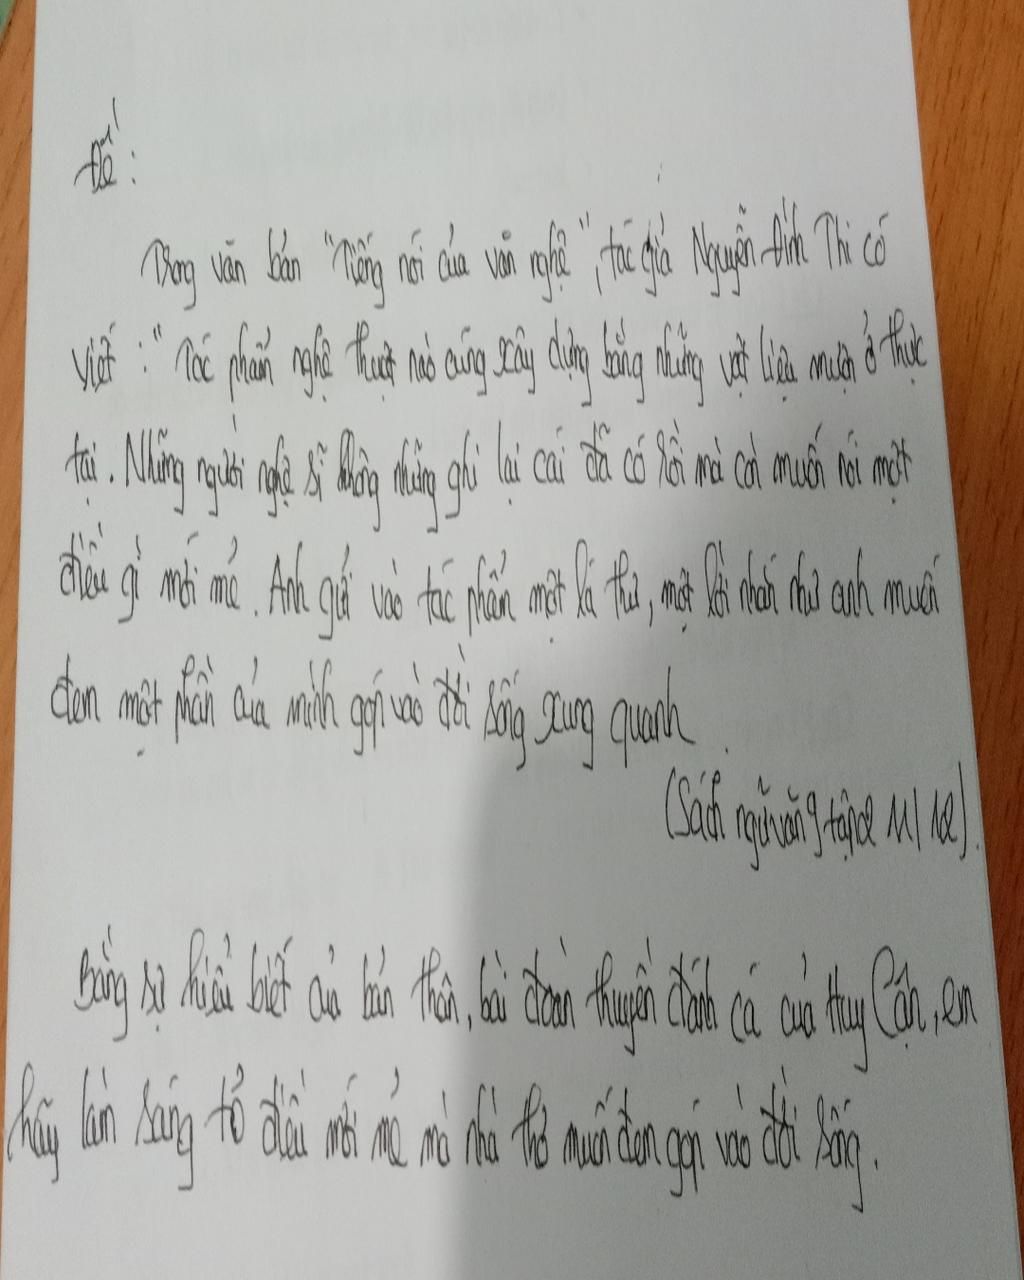 Đề :
Trong văn bản "Tiếng nói của văn nghệ", tác giả Nguyễn Đình Thi có
viết : " Tác phẩm nghệ thuật nào cũng xây dựng bằng những vật liệu mượn ở thực
tại. Những người nghệ sĩ không những ghi lại cái đã có rồi mà còn muốn nói một
điều gì mới mẻ. Anh gửi vào tác phẩm một lá thư, một lời nhắn như anh muốn
đem một phần của mình góp vào đời sống xung quanh.
(Sách ngữ văn 9 tập 2 11/12).
Bằng sự hiểu biết của bản thân, bài đoàn thuyền đánh cá của Huy Cận, em
hãy làm sáng tỏ điều mới mẻ mà nhà thơ muốn đem góp vào đời sống.